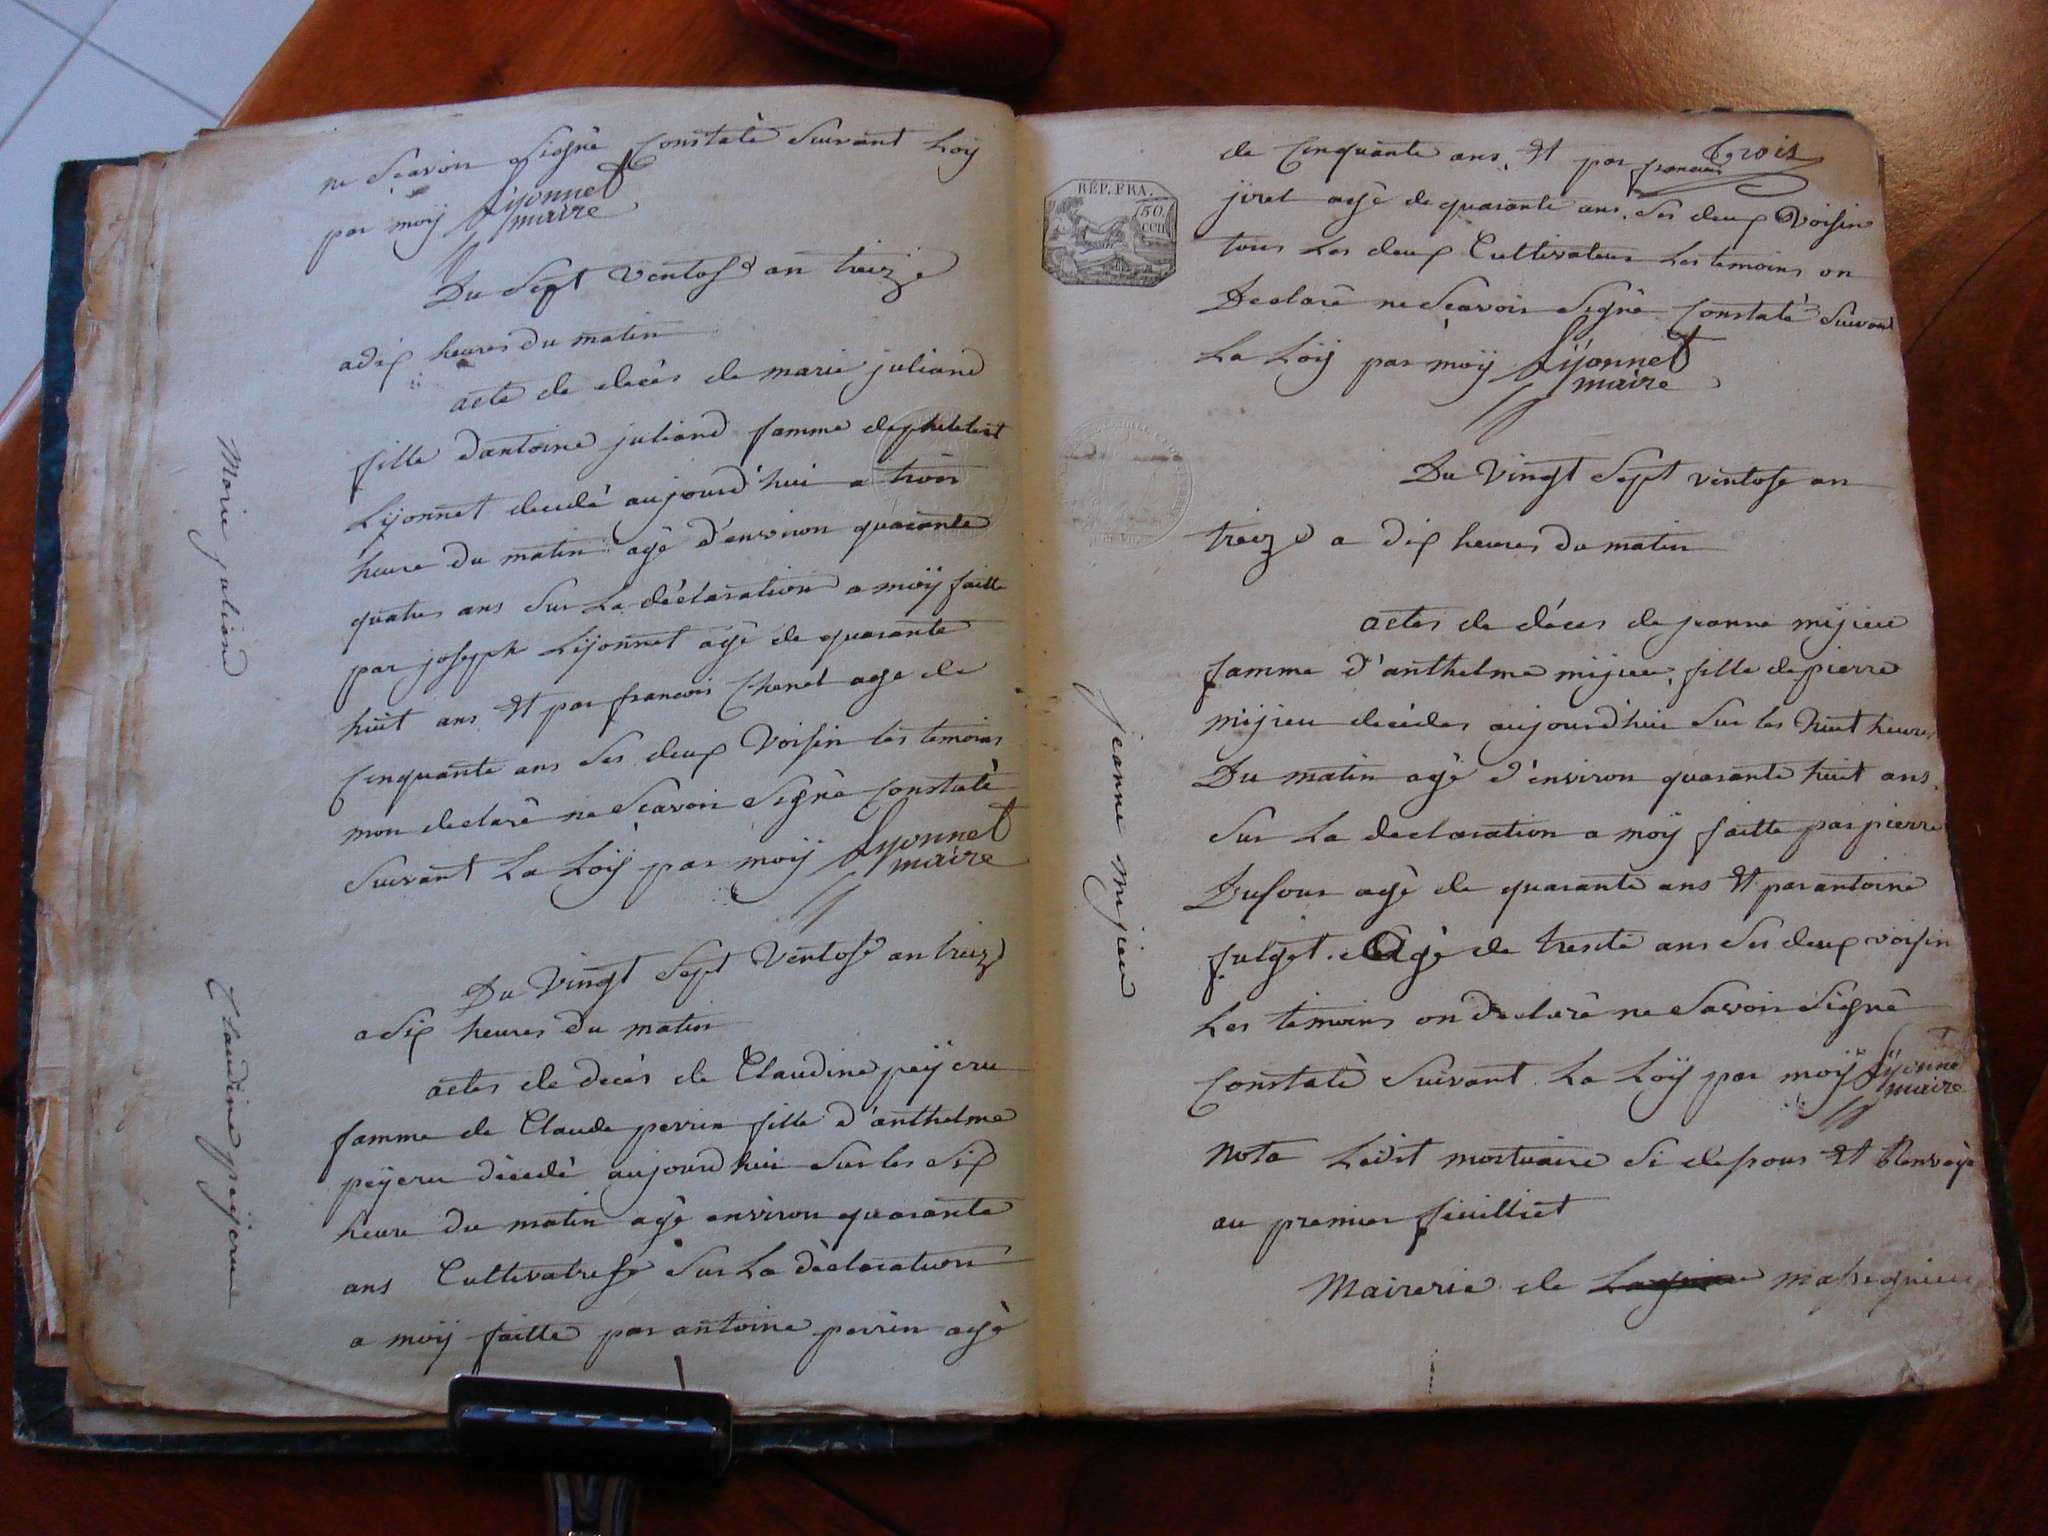 ne Scavoir Signè Constatè Suivant Loÿ
par moÿ Lijonnet
maire
Du Sept ventose an treize
a dix heures du matin
acte de decès de marie juliand
fille dantoine juliand famme de
Lijonnet decedè aujourd'hui a trois
heure du matin agè d'environ quarante
quatre ans Sur La dèclaration a moÿ faitte
par joseph Lijonnet agè de quarante
huit ans et par francois Chenet age de
Cinquante ans Ses deux Voisin les temoins
mon declarè ne Scavoir Signè Constatè
Suivant La Loÿ par moÿ Lyonnet
maire
Marie juliand
Du Vingt Sept Ventose an treize
a dix heures du matin
actes de decès de Claudine peÿcru
famme de Claude perrin fille d'anthelme
peÿcru dècedè aujourd'hui Sur les Six
heure du matin agè environ quarante
ans Cultivatrise Sur La dèclaration
a moÿ faitte par antoine perrin agè
Claudine peÿcrue
Trois
de Cinquante ans. et par francois
jiret agè de quarante ans. Ses deux Voisin
tous Les deux Cultivateur Les temoins on
Declarè ne Scavoir Signè Constatè Suivant
La Loÿ par moÿ Lijonnet
maire
RÉP. FRA.
50.
CEN
Du Vingt Sept ventose an
treize a dix heures du matin
actes de déces de jeanne mijieu
famme d'anthelme mijieu, fille de pierre
mijieu decèdes aujourd'hui Sur les huit heures
Du matin agè d'environ quarante huit ans.
Sur La declaration a moÿ faitte par pierre
Dufour agè de quarante ans et par antoine
fulget. Agè de trente ans Ses deux voisin
Les temoins on declarè ne Savoir Signè
Constatè Suivant La Loÿ par moÿ Lyonnet
maire
jeanne mijieu
nota Ledit mortuaire Si dessous et Renvoÿe
au premier feuilliet
Mairerie de massignieu